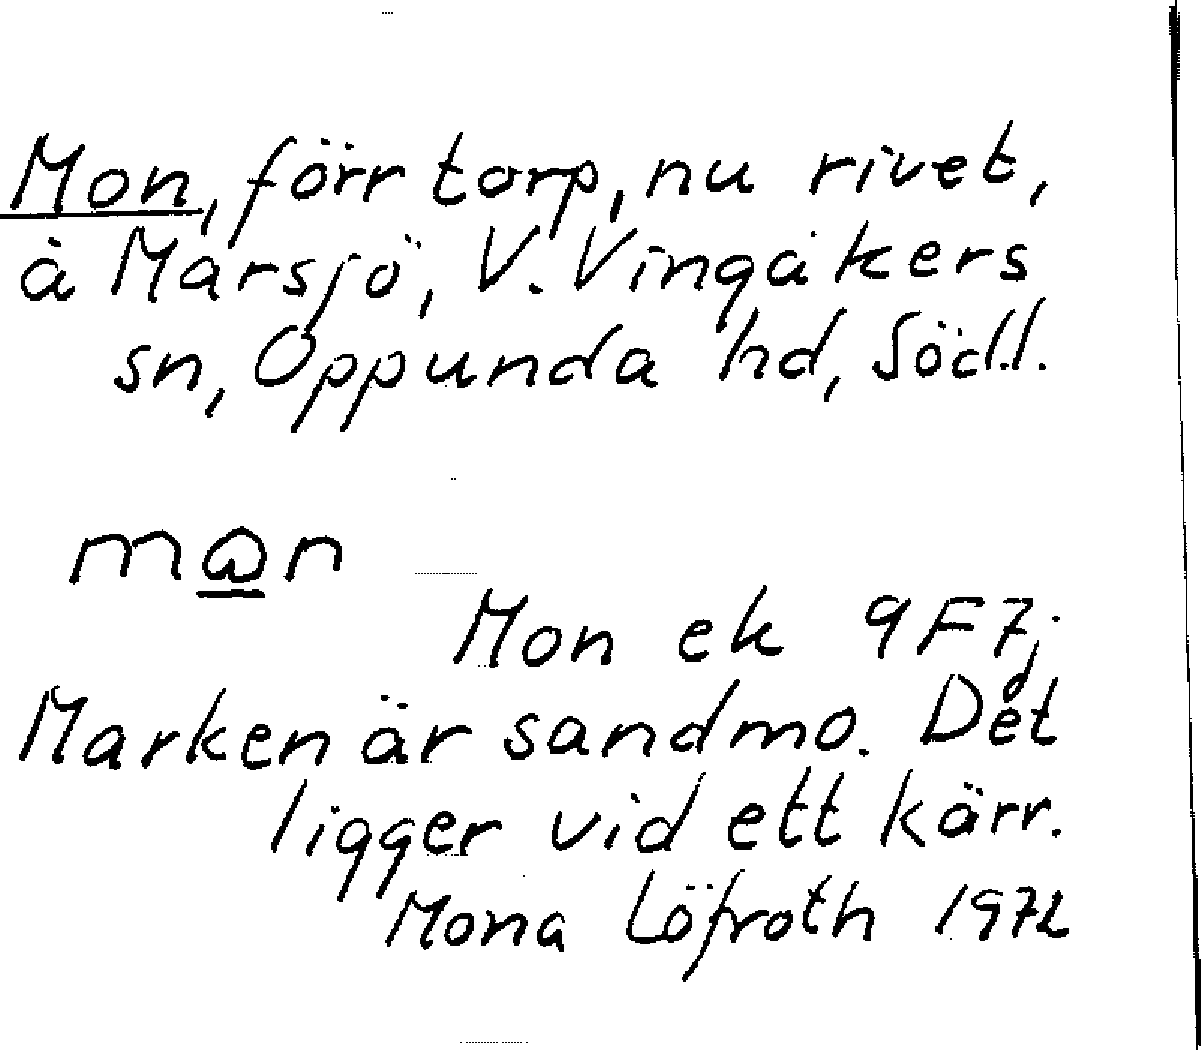 Mon, förr torp, nu rivet,
å Marsjö, V. Vingåkers
sn, Oppunda hd, Södl.
Mon ek 9F7j
Marken är sandmo. Det
ligger vid ett kärr.
Mona Löfroth 1972